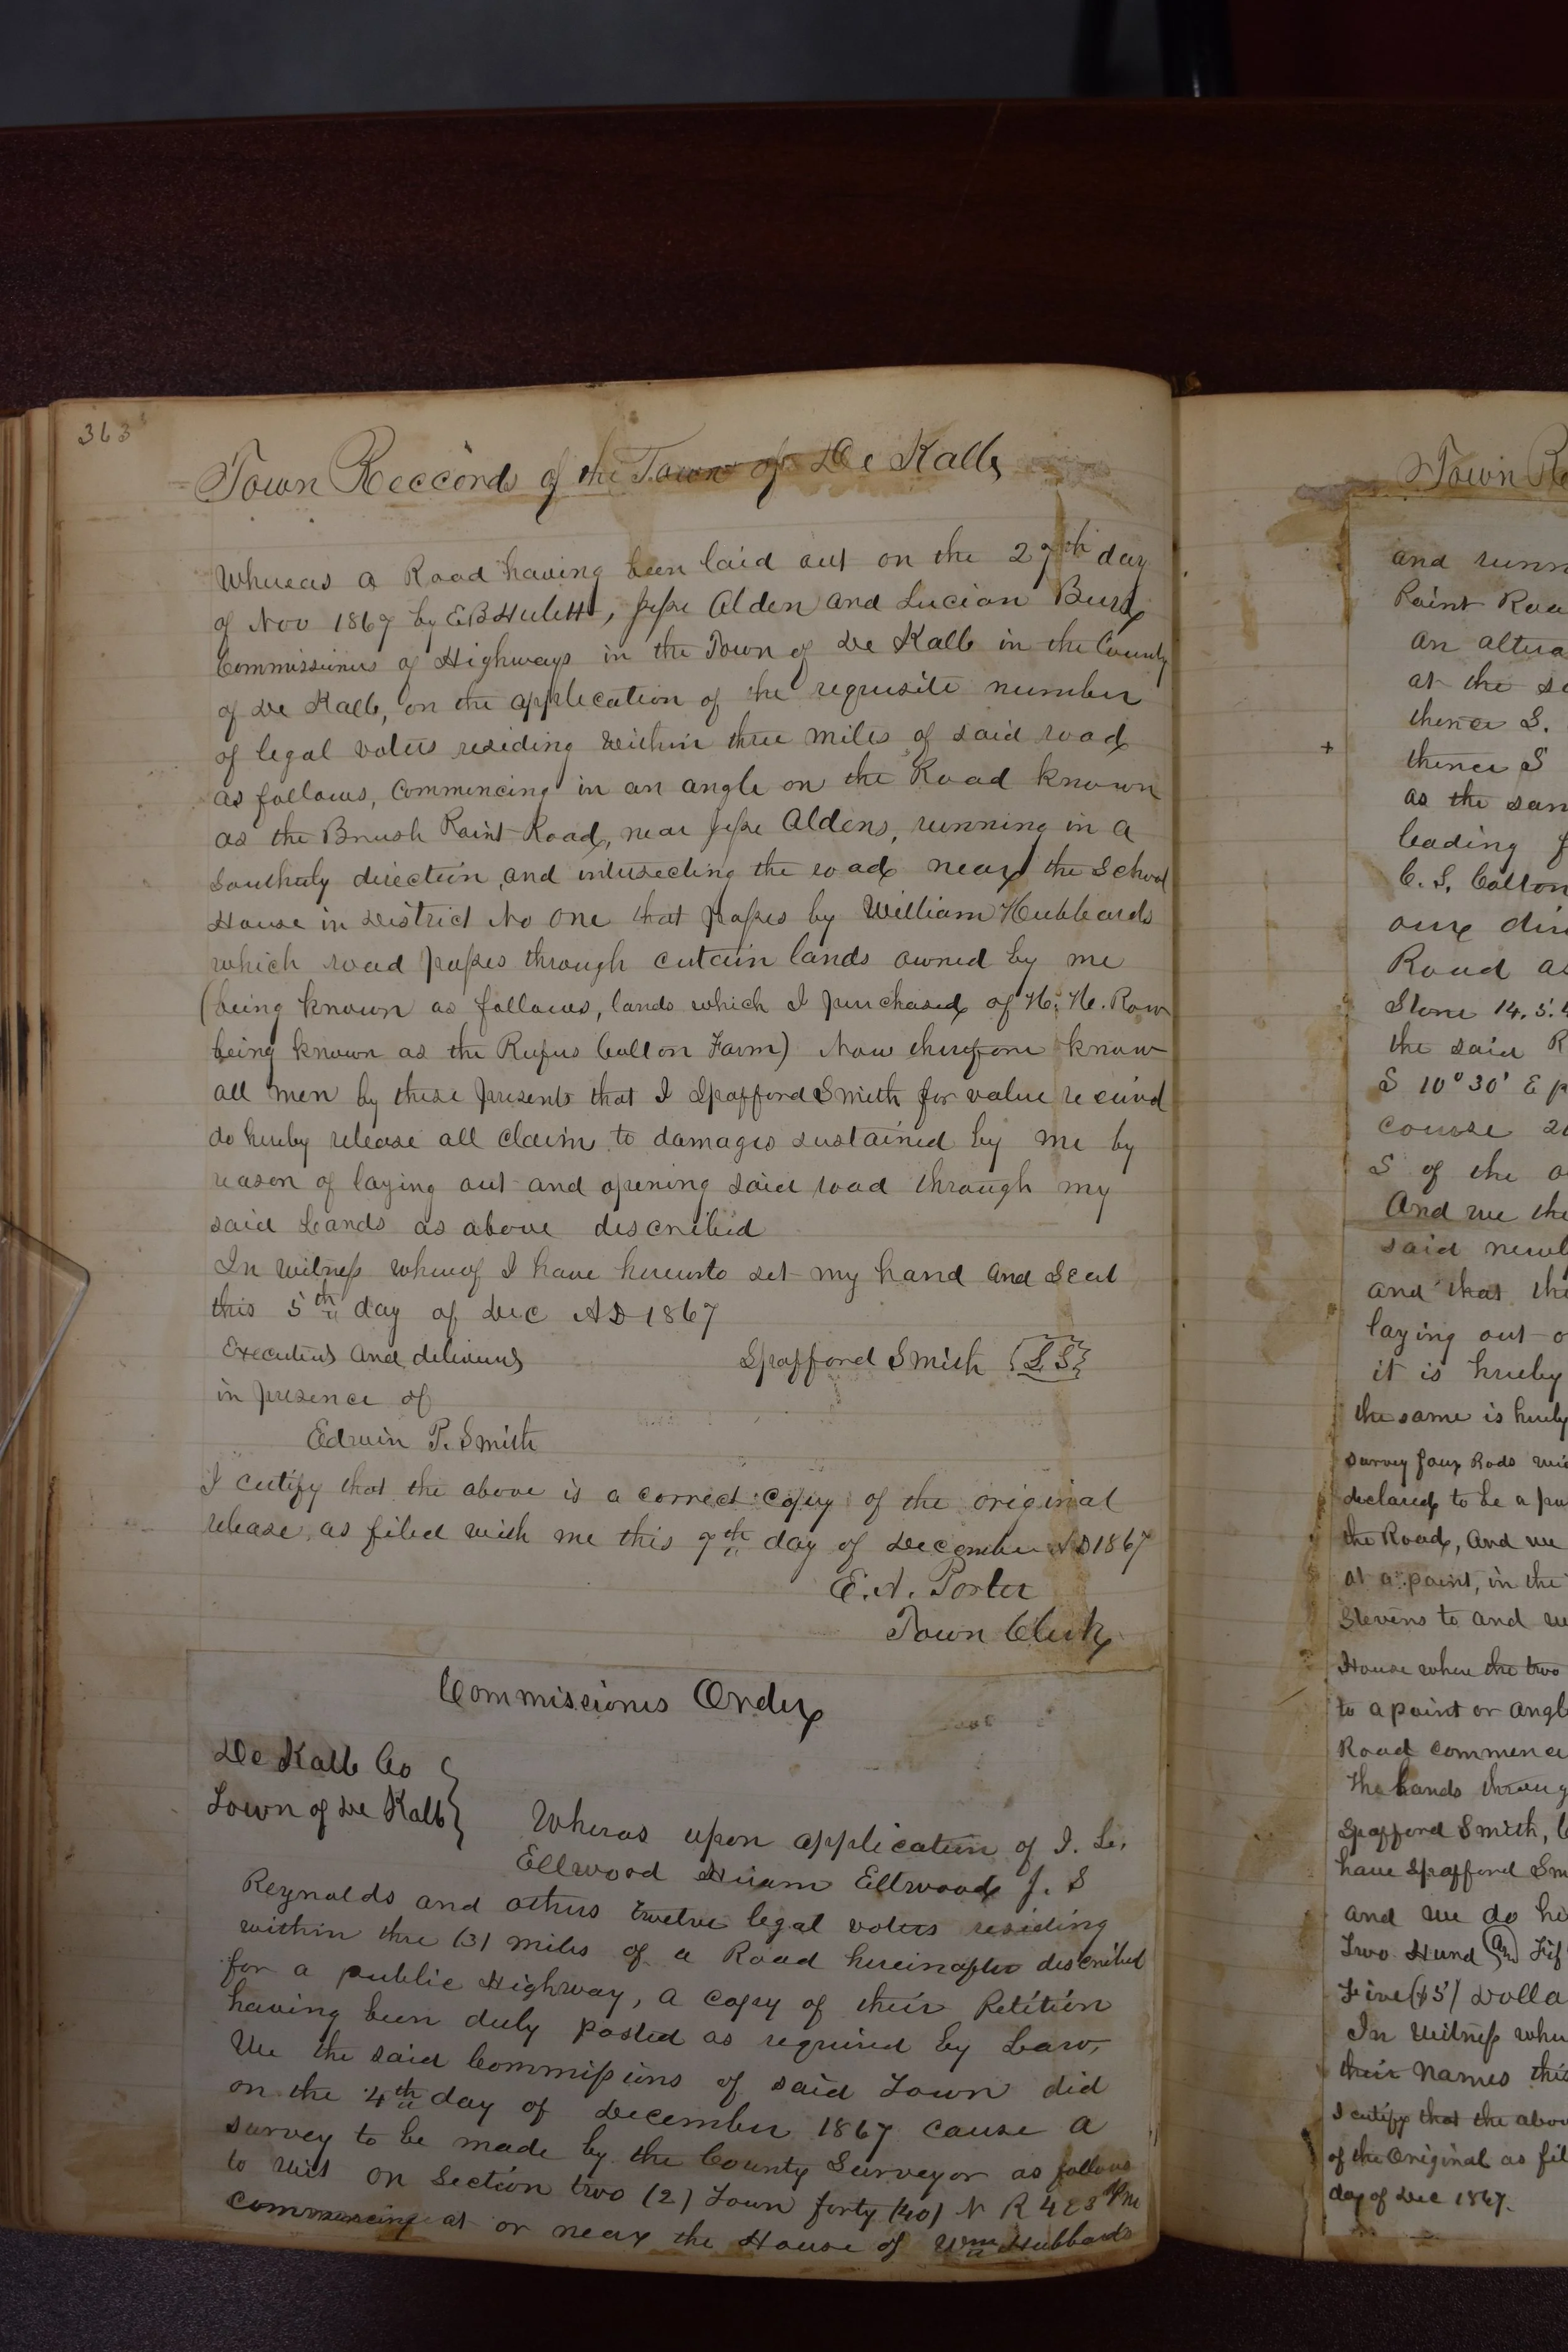 363
Town Reccords of the Town of De Kalb
Whereas a Road having been laid out on the 27th day
of Nov 1867 by E B Hulett, Jesse Alden and Lucian Burr
Commissioners of Highways in the Town of De Kalb in the County
of De Kalb, on the application of the requisite number
of legal voters residing within three miles of said road
as follows, Commencing in an angle on the Road known
as the Brush Point Road, near Jesse Aldens, running in a
Southerly direction, and intersecting the road near the School
House in District No One that passes by William Hubbards
which road passes through certain lands owned by me
(being known as follows, lands which I purchased of H. H. Row
being known as the Rufus Colton Farm) Now therefore know
all men by these presents that I Spafford Smith for value received
do hereby release all claim to damages sustained by me by
reason of laying out and opening said road through my
said Lands as above described
In Witness whereof I have hereunto set my hand and Seal
this 5th day of Dec AD 1867
Executed and delivered
Spafford Smith {L S}
in presence of
Edwin P. Smith
I certify that the above is a correct copy of the original
release, as filed with me this 7th day of December AD 1867
E. A. Porter
Town Clerk
Commissioners Order
De Kalb Co
Town of De Kalb
Wheras upon application of I. L.
Ellwood Hiram Ellwood J. S
Reynolds and others twelve legal voters residing
within three (3) miles of a Road hereinafter described
for a public Highway, a copy of their Petition
having been duly posted as required by Law,
We the said Commissioners of said Town did
on the 4th day of December 1867 cause a
survey to be made by the County Surveyor as follows
to wit on Section two (2) Town forty (40) N R 4 E 3 PM
commencing at or near the House of Wm Hubbards
Town Re
and runn
Point Roa
an altera
at the so
thence S.
+ thence S
as the sam
leading f
C. S. Colton
our dir
Road as
Stone 14. 5.4
the said R
S 10° 30' E p
course 2
S of the
And we the
said newl
and that the
laying out o
it is hereby
the same is hereby
survey four Rods wi
declared to be a pu
the Road, And we
at a point, in the
Stevens to and
House where the two
to a point or angl
Road commence
The Lands throug
Spafford Smith,
have Spafford Sm
and we do he
Two Hund (an) Fif
Five ($5) Dolla
In Witness whe
their Names this
I certify that the abov
of the Original as fil
day of Dec 1867.